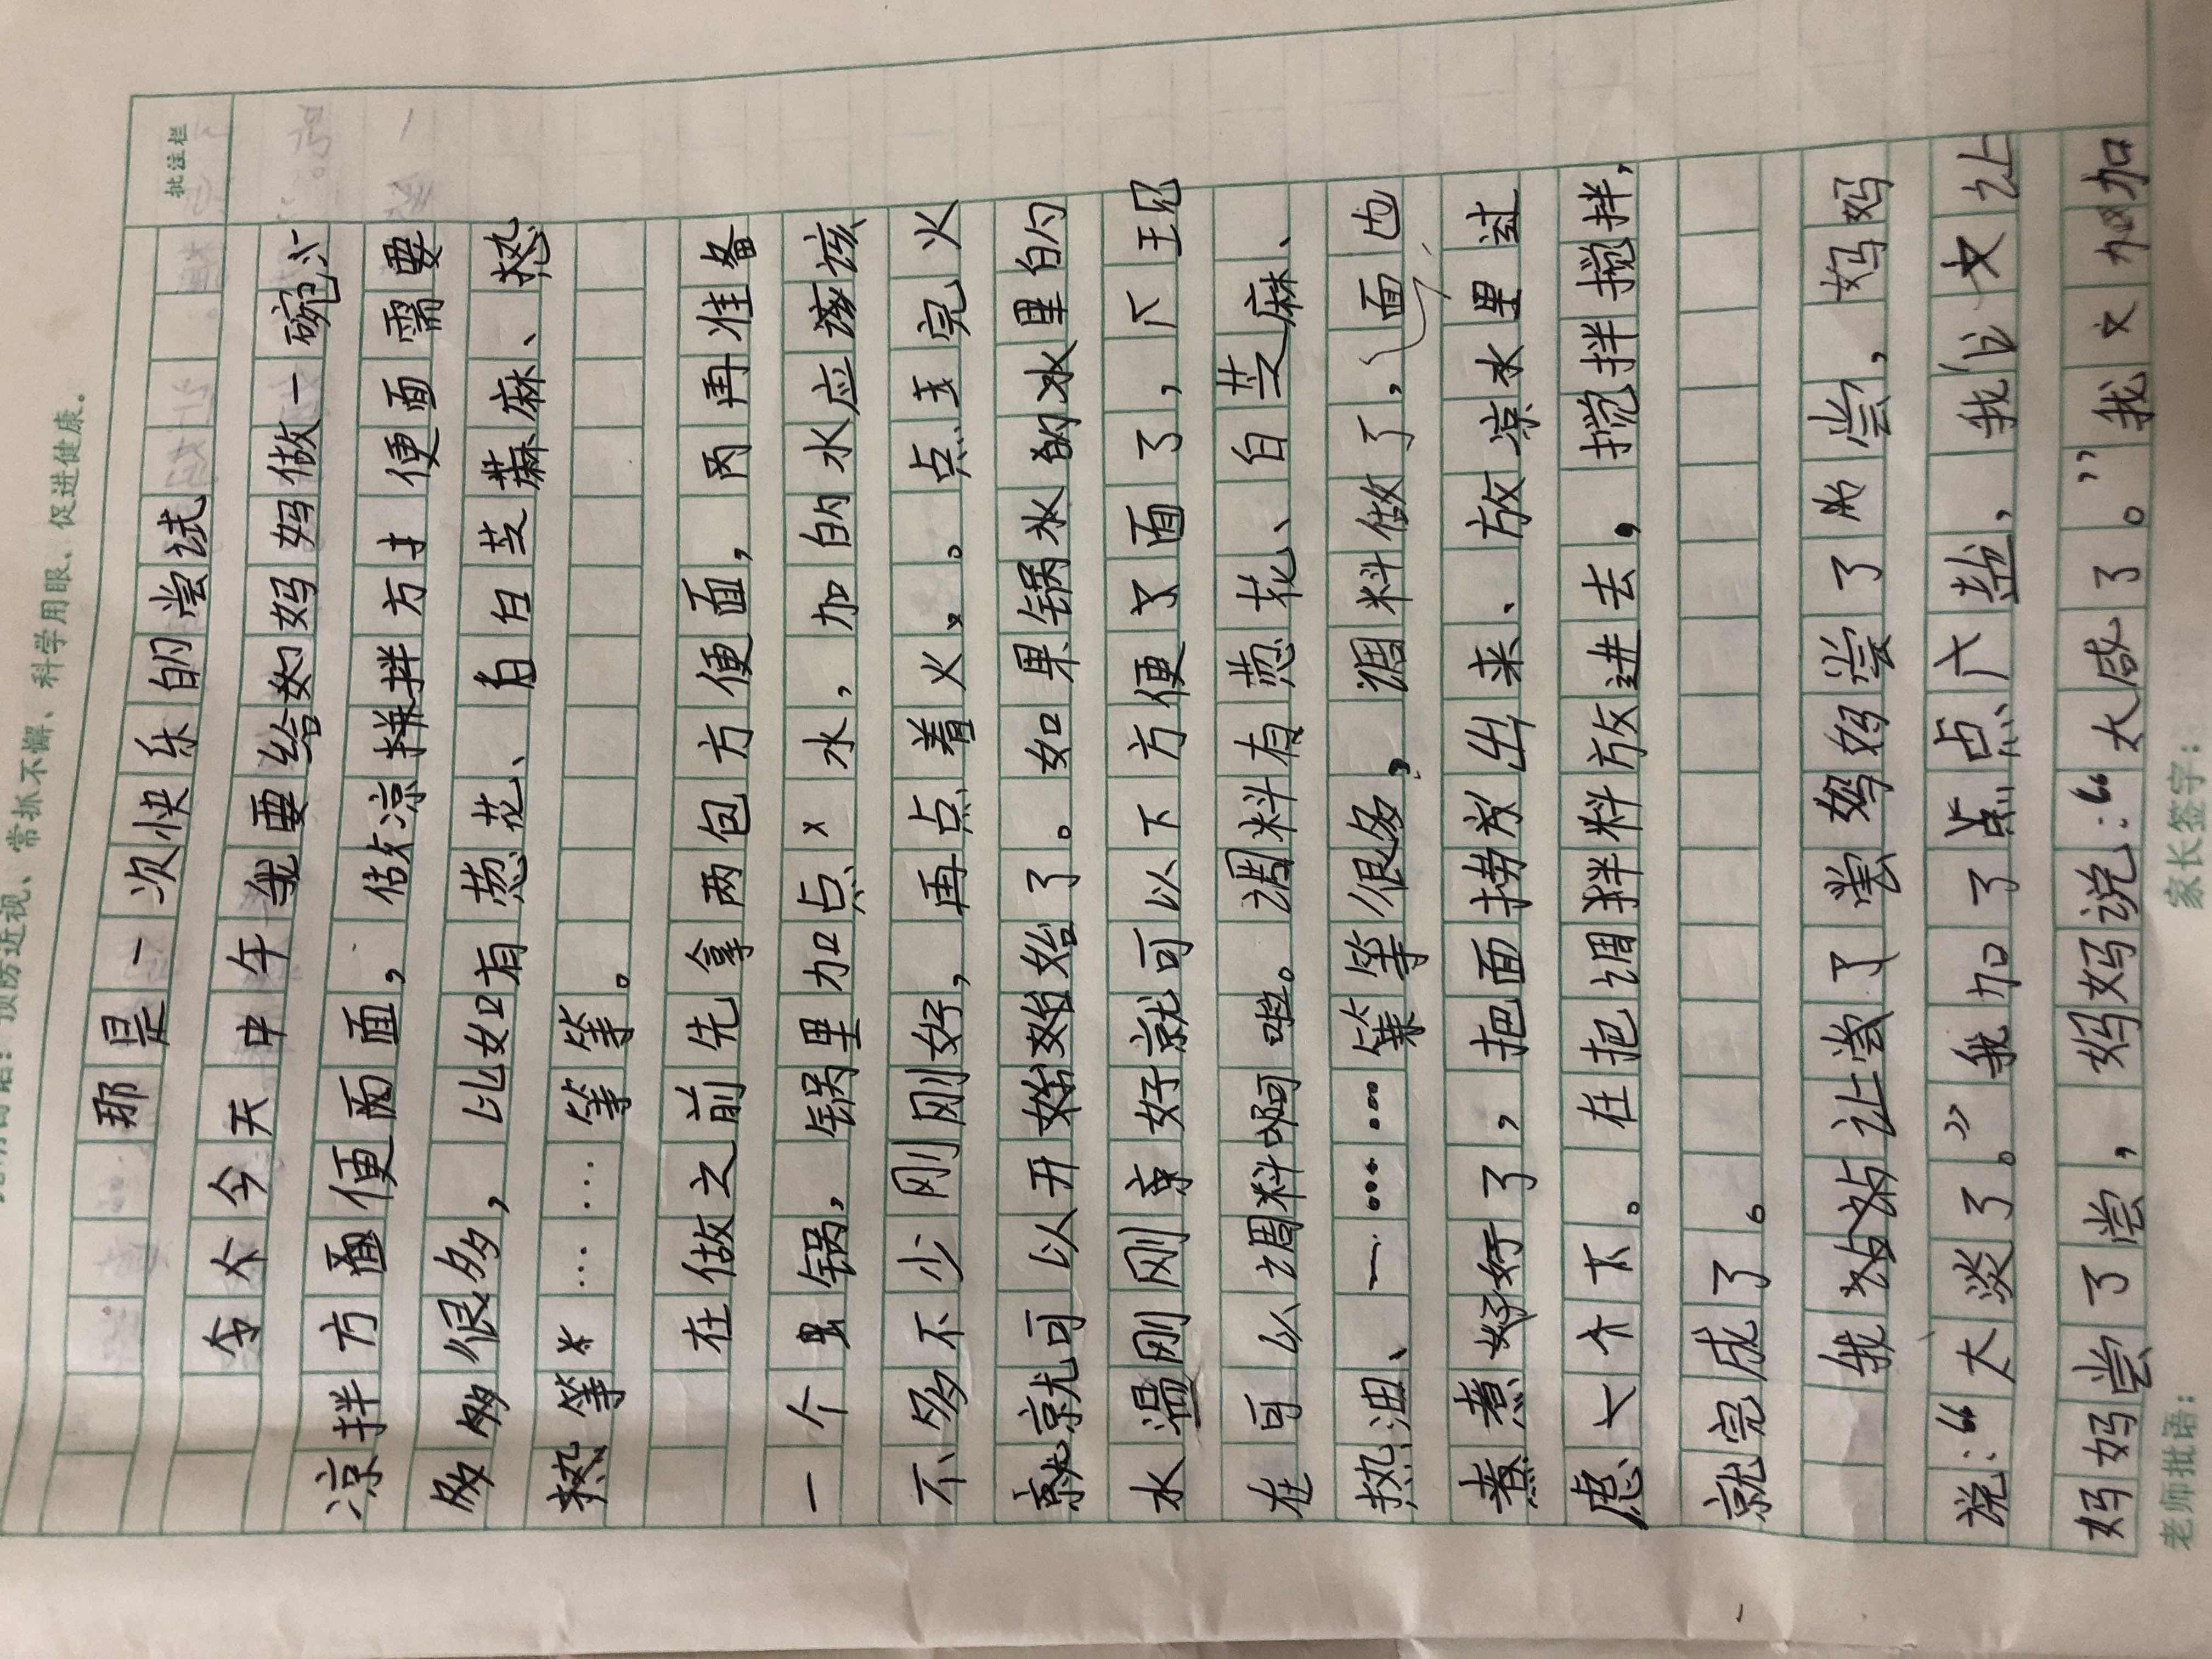 预防近视、常抓不懈、科学用眼、促进健康。
批注栏
那是一次快乐的尝试
今天中午我要给妈妈做一碗
凉拌方便面，做凉拌方便面需要
多多很多，比如有葱花、白芝麻、热
热等……等等。
在做之前先拿两包方便面，再准备
一个锅，锅里加点水，加的水应该
不多不少刚刚好，再点着火。点完火
就可以开始了。如果锅水的水里的
水温刚刚好就可以下方便面了，
在可么调料啊啦。调料有葱花、白芝麻、
热油、一……等等很多，调料做了，面也
煮好了，把面捞出来、放凉水里过
虑一下。在把调料放进去，搅拌搅拌，
就完成了。
我让妈妈尝了尝，妈妈
说：“太淡了。”我加了点盐，我又让
妈妈尝了尝，妈妈说：“太咸了。”我又加
老师批语：
家长签字：